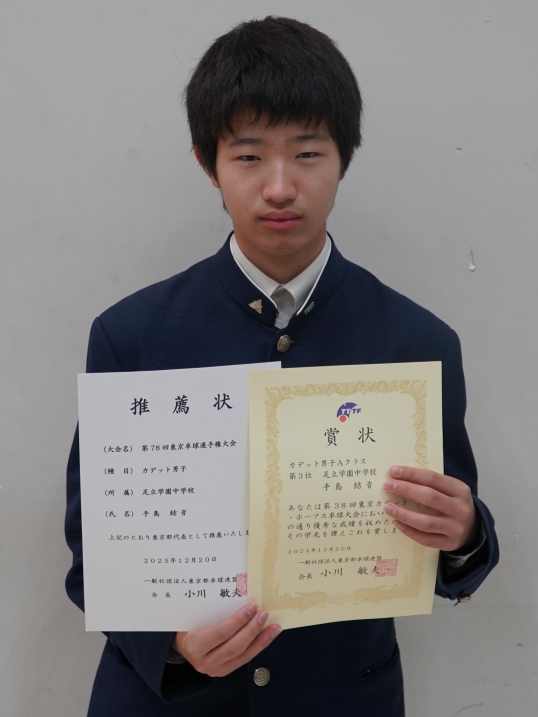 推薦状
(大会名) 第78回東京卓球選手権大会
(種 目) カデット男子
(所 属) 足立学園中学校
(氏 名) 手島 結音
上記のとおり東京都代表として推薦いたしま
2025年12月20日
一般社団法人東京都卓球連盟
会 長 小川 敏夫
TTTF
賞状
カデット男子Aクラス
第3位 足立学園中学校
手島 結音
あなたは第38回東京カデット
・ホープス卓球大会におい
の通り優秀な成績を収めた
その栄光を讃えこれを賞しま
2025年12月20日
一般社団法人東京都卓球連盟
会長 小川 敏夫